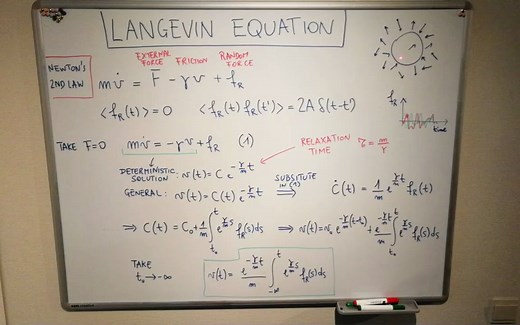 LANGEVIN EQUATION
NEWTON'S 2ND LAW
EXTERNAL FORCE FRICTION RANDOM FORCE
m v̇ = F − γ v + f_R
⟨f_R(t)⟩ = 0 ⟨f_R(t) f_R(t')⟩ = 2A δ(t-t')
f_R
time
TAKE F=0 m v̇ = −γ v + f_R (1)
RELAXATION TIME τ = m/γ
DETERMINISTIC SOLUTION: v(t) = C e^{-γ/m t}
GENERAL: v(t) = C(t) e^{-γ/m t} ⇒ SUBSITUTE IN (1) Ċ(t) = 1/m e^{γ/m t} f_R(t)
⇒ C(t) = C_0 + 1/m ∫_{t_0}^{t} e^{γ/m s} f_R(s) ds ⇒ v(t) = v_0 e^{-γ/m (t-t_0)} + e^{-γ/m t}/m ∫_{t_0}^{t} e^{γ/m s} f_R(s) ds
TAKE t_0 → -∞
v(t) = e^{-γ/m t}/m ∫_{-∞}^{t} e^{γ/m s} f_R(s) ds